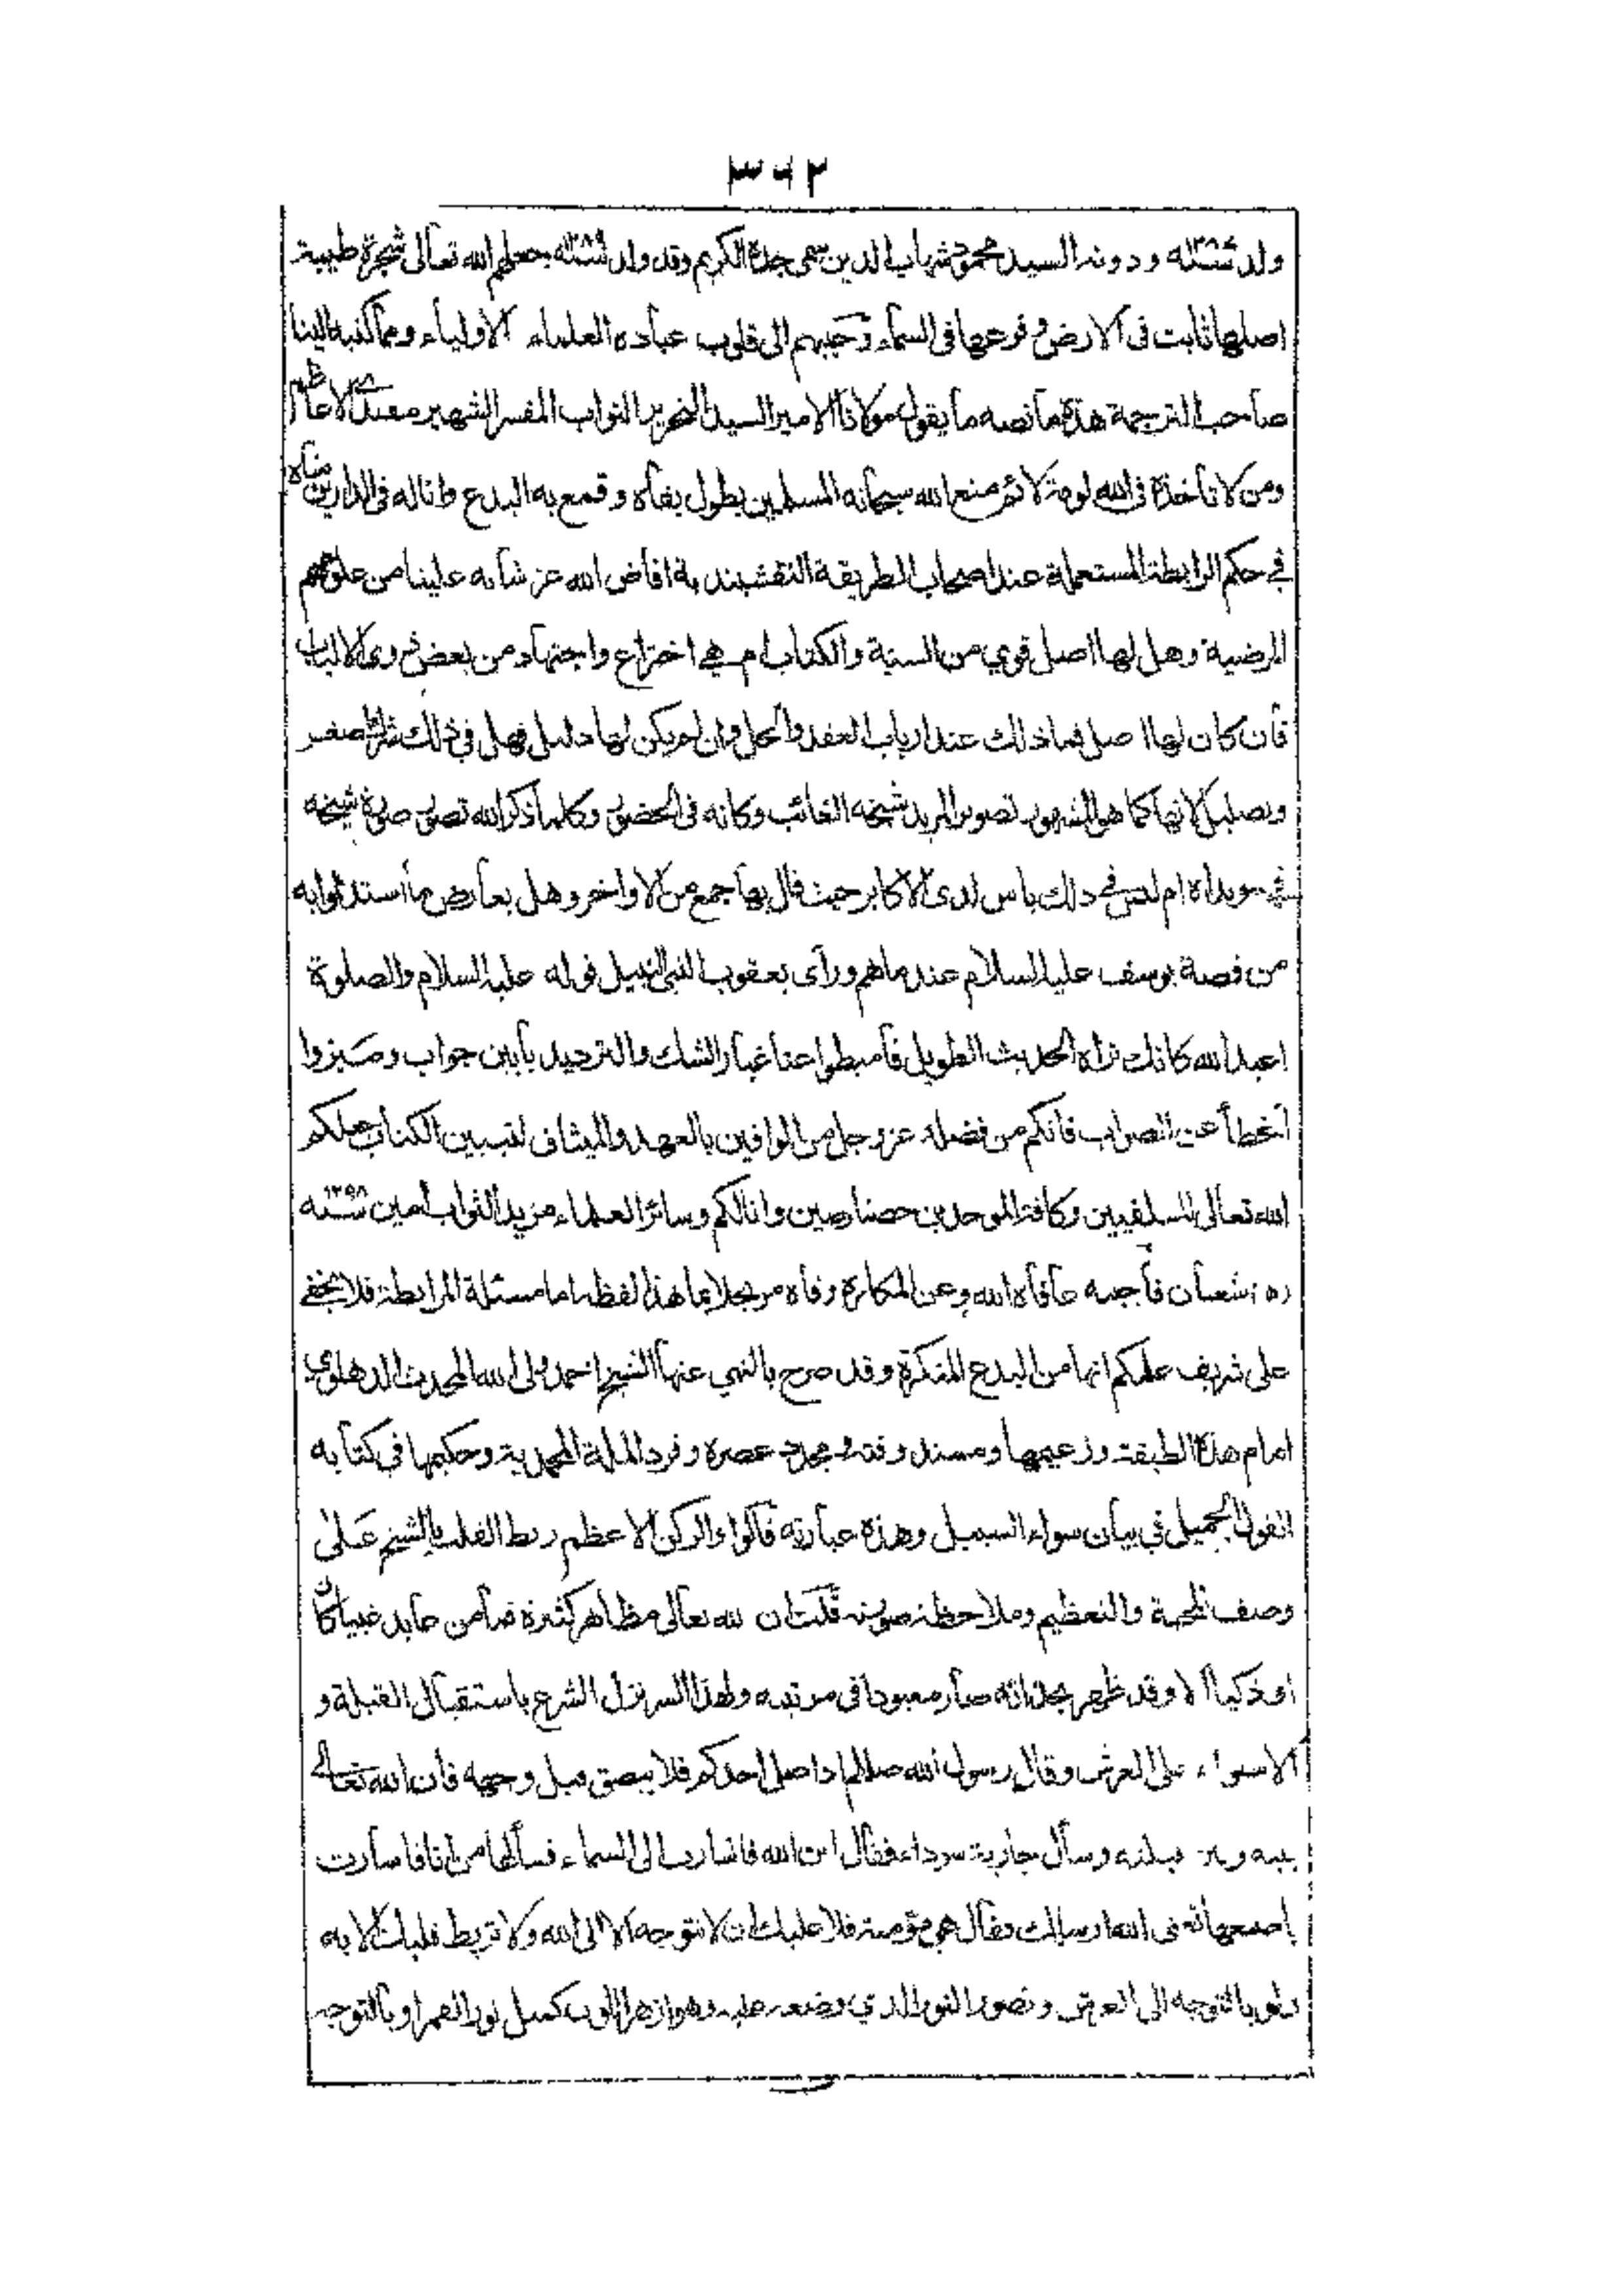 ٣٦٢
ولد ١٢٨٤ه ودونه السيد محمود شهاب الدين سمى جده الكريم وقد ولد ١٢٨٩ه جعلهم الله تعالى شجرة طيبة
اصلها ثابت فى الارض وفرعها فى السماء وحببهم الى قلوب عباده العلماء الاولياء ومما كتبه الينا
صاحب الترجمة هذه ما نصه ما يقول مولانا الامير السيد النحرير النواب المفسر الشهير مقتدى الاعاظم
ومن لا تأخذه فى الله لومة لائم منع الله سبحانه المسلمين بطول بقاه وقمع به البدع واناله فى الدارين مناه
في حكم الرابطة المستعملة عند اصحاب الطريقة النقشبندية افاض الله عز شأنه علينا من علومهم
المرضية وهل لها اصل قوي من السنة والكتاب ام هي اختراع واجتهاد من بعض ذوى الالباب
فأن كان لها اصل فما ذلك عند ارباب العقد والحل وان لم يكن لها دليل فهل فى ذلك شرك اصغر
وتضليل لانها كما هو المشهور تصوير المريد شيخه الغائب وكانه فى الحضور وكلما ذكر الله تصور صورة شيخه
في سويداه ام ليس في ذلك باس لدى الاكابر حيث قال بها جمع من الاواخر وهل يعارض ما أستدلوا به
من قصة يوسف عليه السلام عند ما هم ورأى يعقوب النبى النبيل قوله عليه السلام والصلوة
اعبد الله كانك تراه الحديث الطويل فأميطوا عنا غبار الشك والترديد بأبين جواب وميزوا
الخطأ عن الصواب فانكم من فضله عز وجل من الوافين بالعهد والميثاق لتبيين الكتاب جعلكم
الله تعالى للسلفيين وكافة الموحدين حصنا رصين وانالكم وسائر العلماء مزيد الثواب أمين ١٢٩٨ه
شعبان فأجبه عافاه الله وعن المكاره وقاه مرتجلا بما هذا لفظه اما مسئلة الرابطة فلا يخفى
على شريف علمكم انها من البدع المنكرة وقد صرح بالنهي عنها الشيخ احمد ولى الله المحدث الدهلوي
امام هذه الطبقة وزعيمها ومسند وقته ومجدد عصره وفرد الملة المحمدية وحكيمها في كتابه
القول الجميل في بيان سواء السبيل وهذه عبارته قالوا والركن الاعظم ربط القلب بالشيخ على
وصف المحبة والتعظيم وملاحظة صورته قلت ان لله تعالى مظاهر كثيرة فما من عابد غبيا كان
او ذكيا الا وقد ظهر بحذائه صار معبودا فى مرتبته ولهذا السر نزل الشرع باستقبال القبلة و
الاستواء على العرش وقال رسول الله صللم اذا صلى احدكم فلا يبصق قبل وجهه فان الله تعالى
بينه وبين قبلته وسأل جارية سوداء فقال اين الله فاشارت الى السماء فسألها من انا فاشارت
باصبعها تعنى الله ارسلك فقال هي مؤمنة فلا عليك ان لا تتوجه الا الى الله ولا تربط قلبك الا به
ولو بالتوجه الى العرش وتصور النور الذي وضعه عليه وهو ازهر اللون كمثل نور القمر او بالتوجه